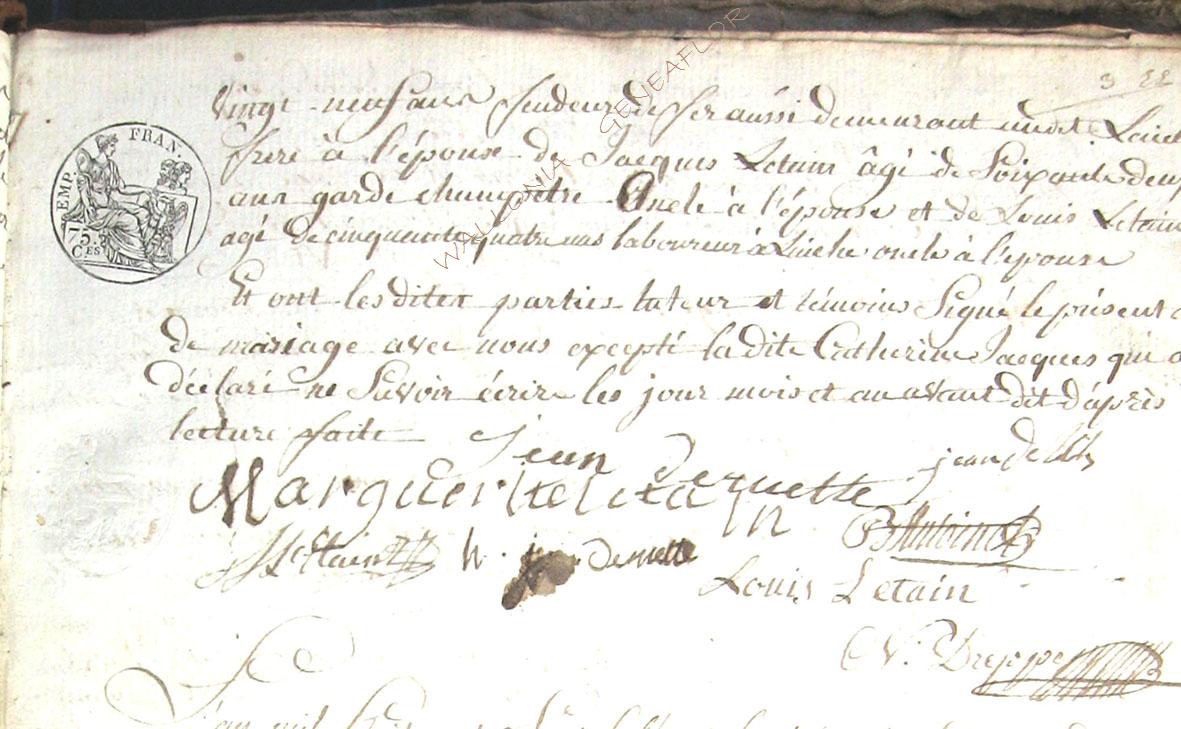 3 22
vingt-neuf ans fendeur de fer aussi demeurant
frere à l'épouse de Jacques Letain âgé de Soixante deux
ans garde champetre Oncle à l'épouse et de Louis Letain
agé de cinquante quatre ans laboureur à oncle à l'epouse
Et ont les dites parties tuteur et témoins Signé le présent
de mariage avec nous excepté la dite Catherine Jacques qui a
déclaré ne Savoir écrire les jour mois et an avant dit d'après
lecture faite
jean
Marguerite Letain
Louis Letain
EMP. FRAN.
75 CES
WALLONIA GENEAFLOR